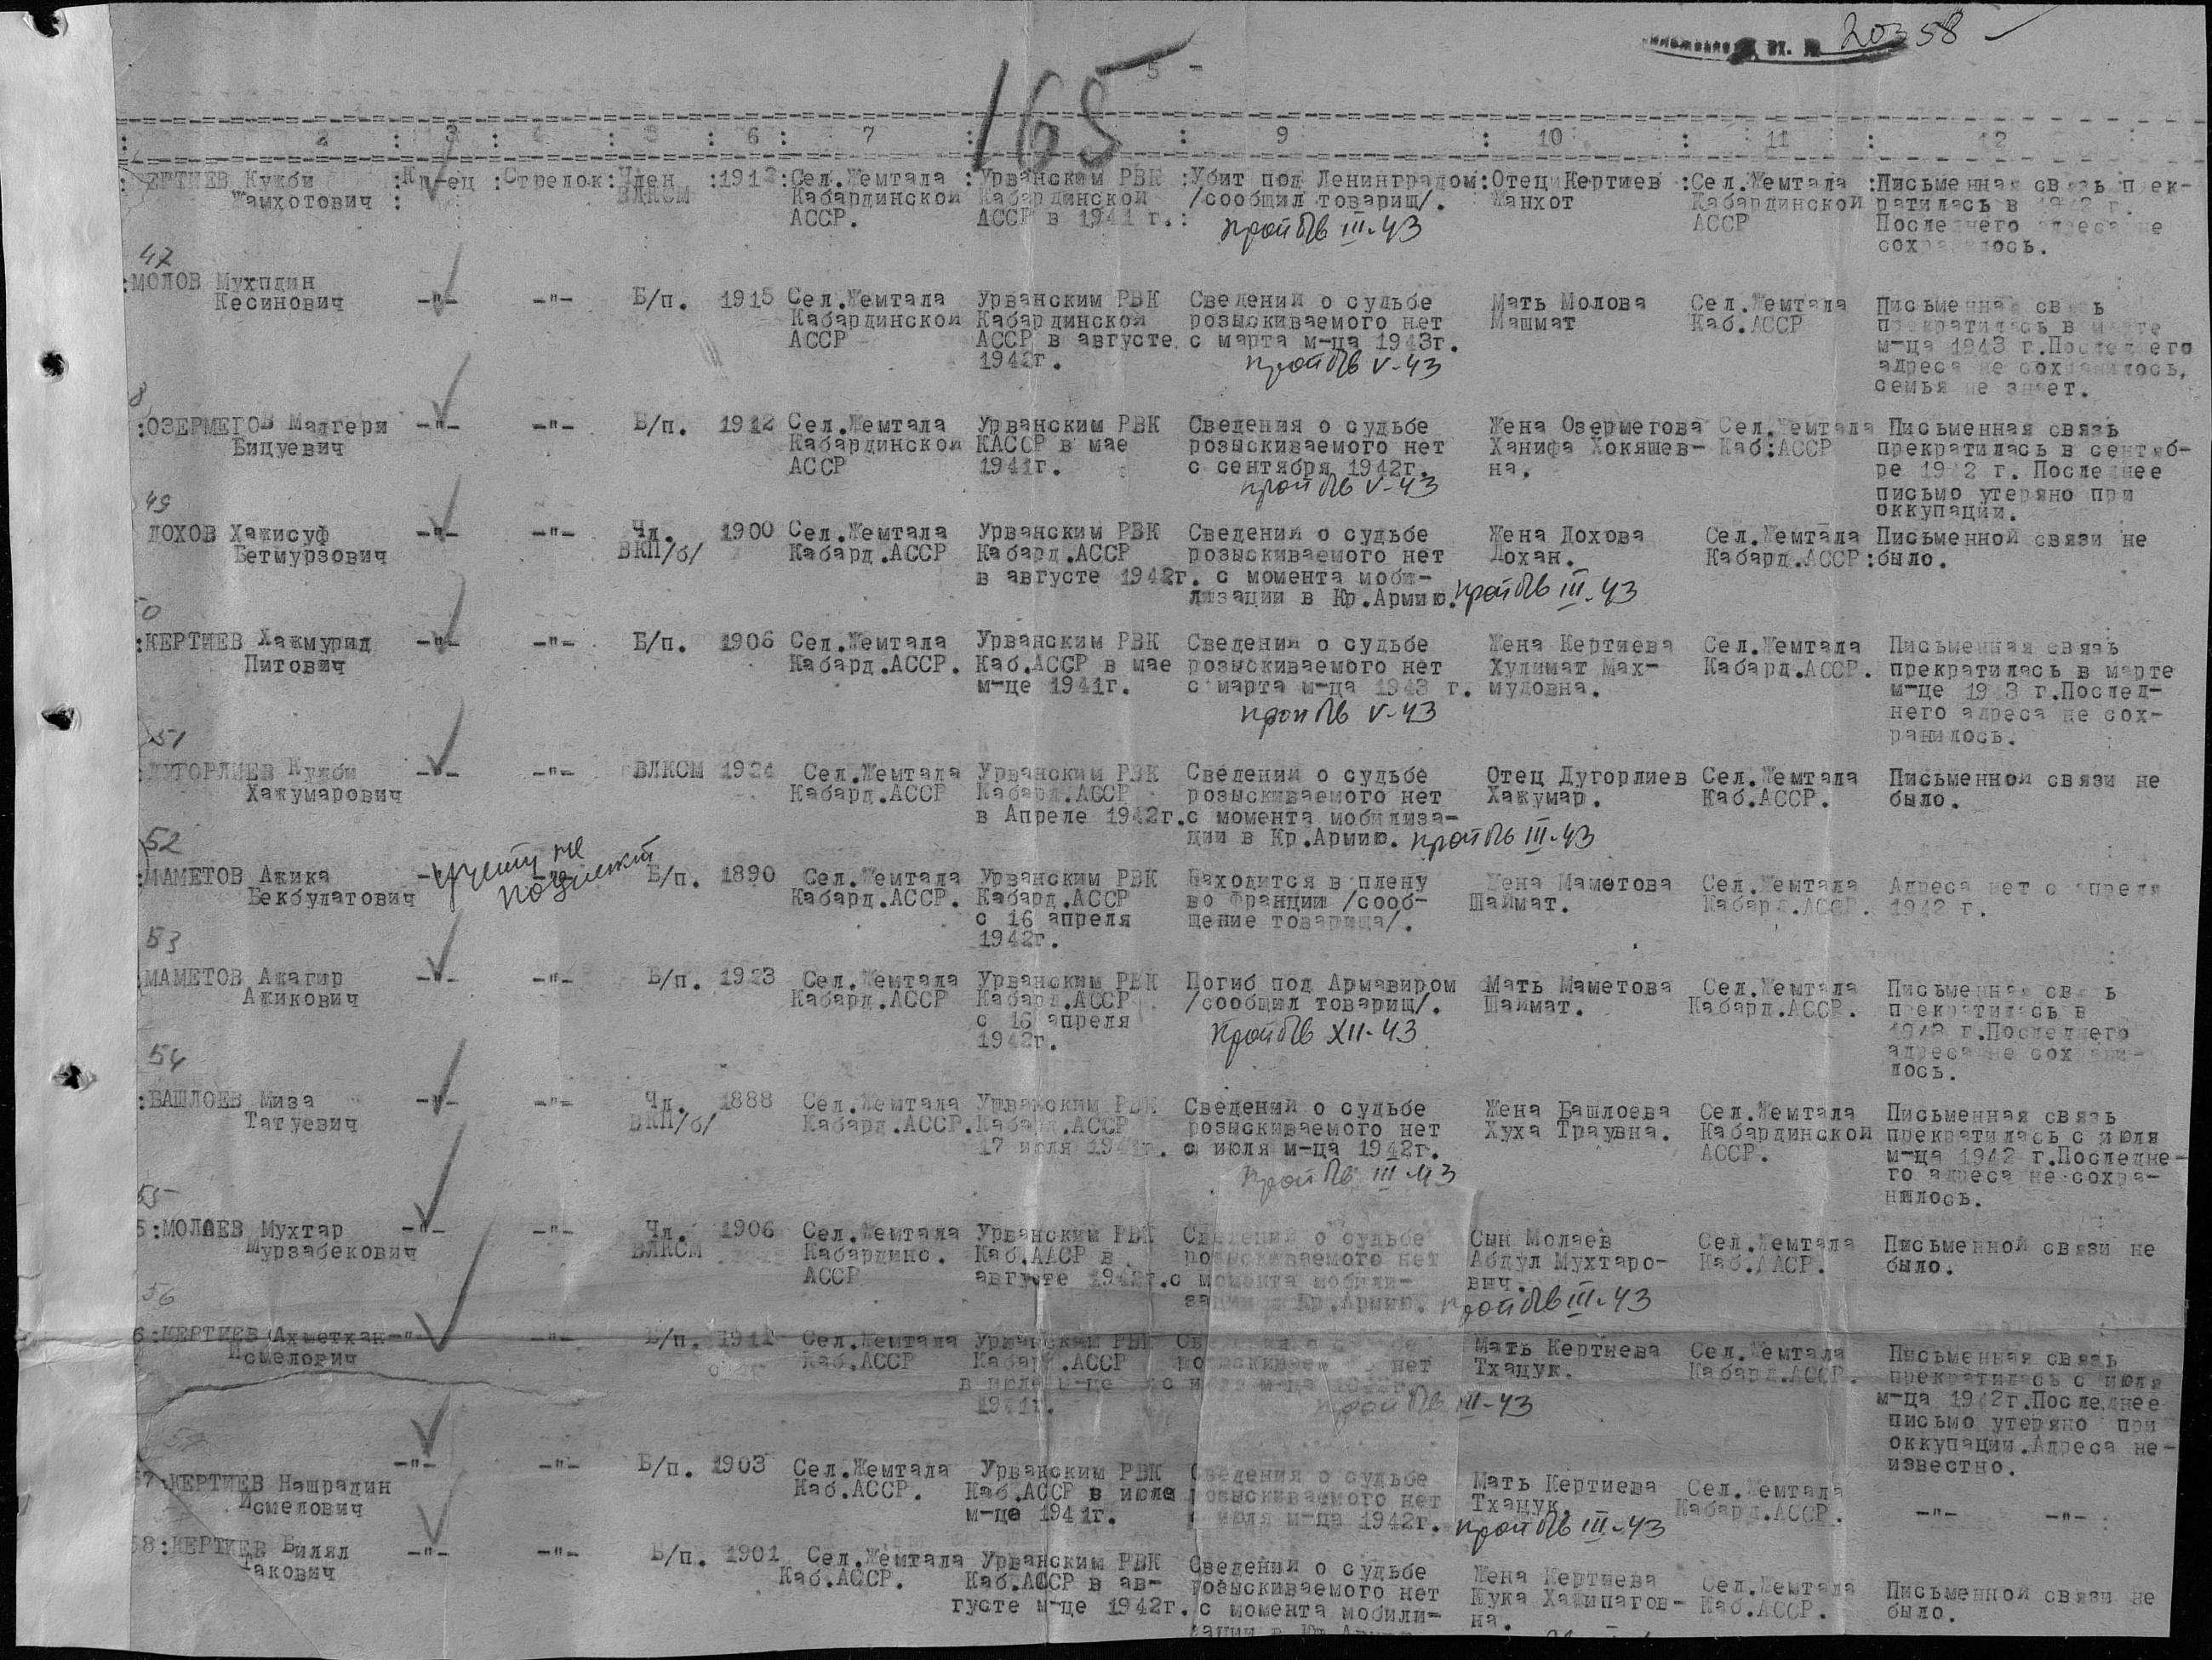 вх. № 20358
165
5 -
2 : 3 : 4 : 5 : 6 : 7 : : 9 : 10 : 11 : 12
:КЕРТИЕВ Кужби :Кр-ец :Стрелок:Член :1912:Сел.Жемтала :Урванским РВК :Убит под Ленинградом:Отец Кертиев :Сел.Жемтала :Письменная связь прек-
Жамхотович : ВЛКСМ Кабардинской Кабардинской /сообщил товарищ/. Жанхот Кабардинской ратилась в 1942 г.
АССР. АССР в 1941 г.: АССР Последнего адреса не
проп б/в III-43 сохранилось.
47
:МОЛОВ Мухпдин
Кесинович -"- -"- Б/п. 1915 Сел.Жемтала Урванским РВК Сведений о судьбе Мать Молова Сел.Жемтала Письменная связь
Кабардинской Кабардинской розыскиваемого нет Машмат Каб.АССР прекратилась в марте
АССР АССР в августе с марта м-ца 1943г. м-ца 1943 г.Последнего
1942г. проп б/в V-43 адреса не сохранилось,
семья не знает.
8
:ОЗЕРМЕГОВ Мадгери -"- -"- Б/п. 1912 Сел.Жемтала Урванским РВК Сведения о судьбе Жена Озерметова Сел.Жемтала Письменная связь
Бицуевич Кабардинской КАССР в мае розыскиваемого нет Ханифа Хокяшев- Каб:АССР прекратилась в сентяб-
АССР 1941г. с сентября 1942г. на. ре 1942 г. Последнее
проп б/в V-43 письмо утеряно при
оккупации.
49
ДОХОВ Хажисуф -"- -"- Чл. 1900 Сел.Жемтала Урванским РВК Сведений о судьбе Жена Дохова Сел.Жемтала Письменной связи не
Бетмурзович ВКП/б/ Кабард.АССР Кабард.АССР розыскиваемого нет Дохан. Кабард.АССР:было.
в августе 1942г. с момента моби-
лизации в Кр.Армию. проп б/в III-43
50
:КЕРТИЕВ Хажмурид -"- -"- Б/п. 1906 Сел.Жемтала Урванским РВК Сведений о судьбе Жена Кертиева Сел.Жемтала Письменная связь
Питович Кабард.АССР. Каб.АССР в мае розыскиваемого нет Хулимат Мах- Кабард.АССР. прекратилась в марте
м-це 1941г. с марта м-ца 1943 г. мудовна. м-це 1943 г.Послед-
проп б/в V-43 него адреса не сох-
ранилось.
51
:ДУГОРЛИЕВ Кужби -"- -"- ВЛКСМ 1924 Сел.Жемтала Урванским РВК Сведений о судьбе Отец Дугорлиев Сел.Жемтала Письменной связи не
Хажумарович Кабард.АССР Кабард.АССР розыскиваемого нет Хажумар. Каб.АССР. было.
в Апреле 1942г.с момента мобилиза-
ции в Кр.Армию. проп б/в III-43
52
:МАМЕТОВ Ажика учету не подлежит Б/п. 1890 Сел.Жемтала Урванским РВК Находится в плену Жена Маметова Сел.Жемтала Адреса нет с апреля
Бекбулатович Кабард.АССР. Кабард.АССР во Франции /сооб- Шаймат. Кабард.АССР. 1942 г.
с 16 апреля щение товарища/.
1942г.
53
МАМЕТОВ Ажагир -"- -"- Б/п. 1923 Сел.Жемтала Урванским РВК Погиб под Армавиром Мать Маметова Сел.Жемтала Письменная связь
Ажикович Кабард.АССР Кабард.АССР /сообщил товарищ/. Шаймат. Кабард.АССР. прекратилась в
с 16 апреля 1943 г.Последнего
1942г. проп б/в XII-43 адреса не сохрани-
лось.
54
:БАШЛОЕВ Миза -"- -"- Чл. 1888 Сел.Жемтала Урванским РВК Сведений о судьбе Жена Башлоева Сел.Жемтала Письменная связь
Татуевич ВКП/б/ Кабард.АССР.Кабард.АССР розыскиваемого нет Хуха Траувна. Кабардинской прекратилась с июля
17 июля 1941г. с июля м-ца 1942г. АССР. м-ца 1942 г.Последне-
проп б/в III-43 го адреса не сохра-
нилось.
55
5:МОЛАЕВ Мухтар -"- -"- Чл. 1906 Сел.Жемтала Урванским РВК Сведений о судьбе Сын Молаев Сел.Жемтала Письменной связи не
Мурзабекович ВЛКСМ Кабардинс. Каб.ААСР в розыскиваемого нет Абдул Мухтаро- Каб.ААСР. было.
АССР августе 1942г.с момента мобили- вич.
зации в Кр.Армию. проп б/в III-43
56
6:КЕРТИЕВ Ахметхан-"- -"- Б/п. 1911 Сел.Жемтала Урванским РВК Сведения о судьбе Мать Кертиева Сел.Жемтала Письменная связь
Исмелович Каб.АССР Кабард.АССР розыскиваемого нет Тхацук. Кабард.АССР. прекратилась с июля
в июле м-це с июля м-ца 1942г. м-ца 1942г.Последнее
1941г. проп б/в III-43 письмо утеряно при
оккупации.Адреса не-
известно.
57
57:КЕРТИЕВ Нашрадин -"- -"- Б/п. 1903 Сел.Жемтала Урванским РВК Сведения о судьбе Мать Кертиева Сел.Жемтала
Исмелович Каб.АССР. Каб.АССР в июле розыскиваемого нет Тхацук. Кабард.АССР. -"- -"-
м-це 1941г. с июля м-ца 1942г. проп б/в III-43
58:КЕРТИЕВ Билял -"- -"- Б/п. 1901 Сел.Жемтала Урванским РВК Сведений о судьбе Жена Кертиева Сел.Жемтала Письменной связи не
Такович Каб.АССР. Каб.АССР в ав- розыскиваемого нет Жука Хажипагов- Каб.АССР. было.
густе м-це 1942г. с момента мобили- на.
зации в Кр.Армию